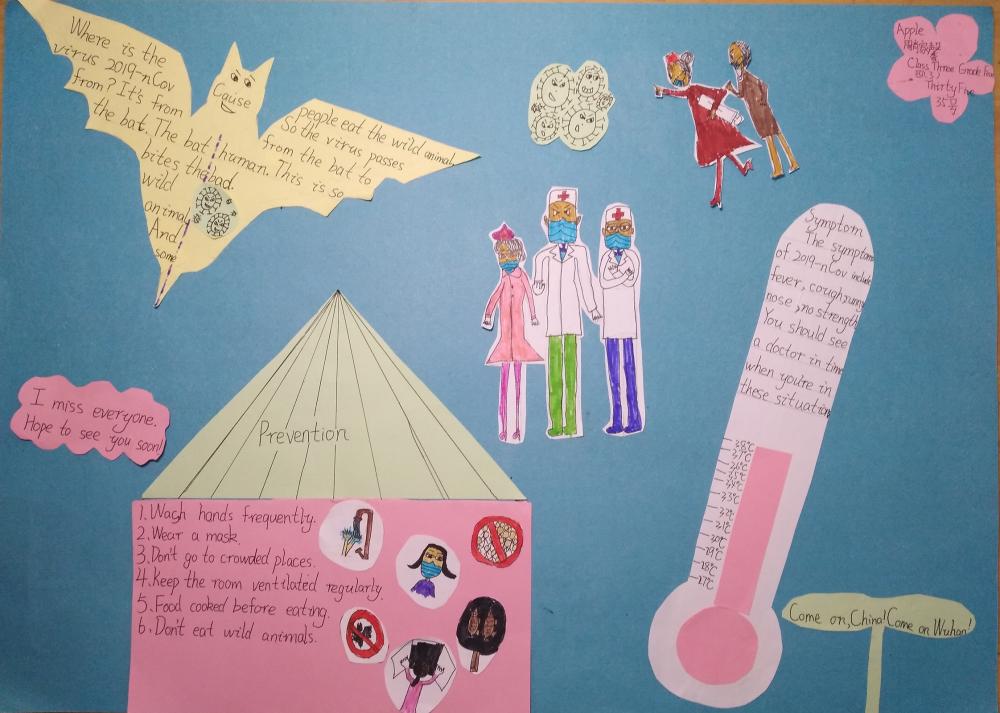 Where is the
virus 2019-nCov
from? It's from
the bat. The bat
bites the bad.
wild
animal.
And
some
Cause
people eat the wild animal.
So the virus passes
from the bat to
human. This is so
Apple
Class Three Grade Five
Thirty Five
35号
Symptom
The symptoms
of 2019-nCov include
fever, cough, runny
nose, no strength
You should see
a doctor in time
when you're in
these situation
I miss everyone.
Hope to see you soon!
Prevention
1. Wach hands frequently.
2. Wear a mask.
3. Don't go to crowded places.
4. Keep the room ventilated regularly.
5. Food cooked before eating.
6. Don't eat wild animals.
38℃
37℃
36℃
35℃
34℃
33℃
32℃
31℃
30℃
29℃
28℃
27℃
Come on, China! Come on Wuhan!